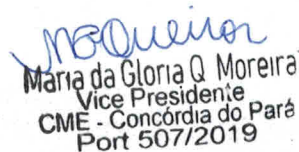 MGQueiroz
Maria da Gloria Q Moreira
Vice Presidente
CME - Concórdia do Pará
Port 507/2019